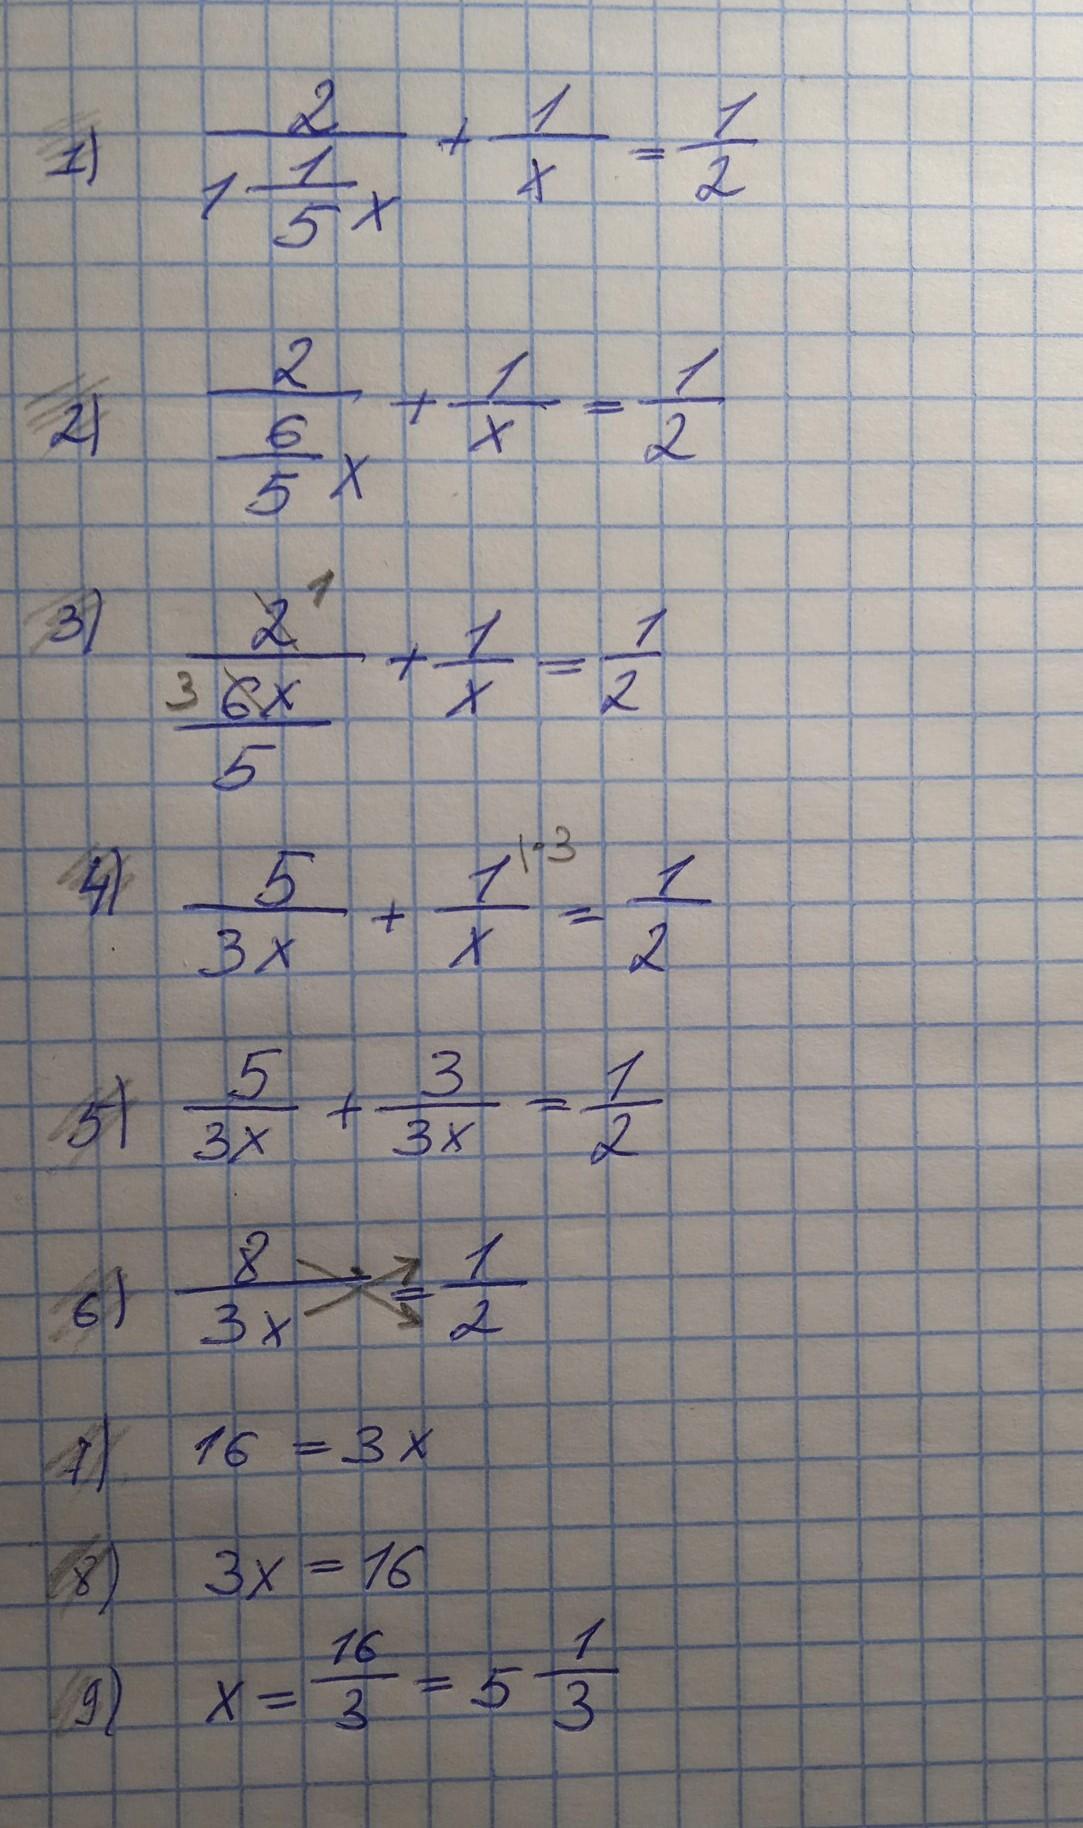 1) 2/(1 1/5 x) + 1/x = 1/2
2) 2/(6/5 x) + 1/x = 1/2
3) 2 1/(3 6x/5) + 1/x = 1/2
4) 5/3x + 1/x |·3 = 1/2
5) 5/3x + 3/3x = 1/2
6) 8/3x = 1/2
7) 16 = 3x
8) 3x = 16
9) x = 16/3 = 5 1/3